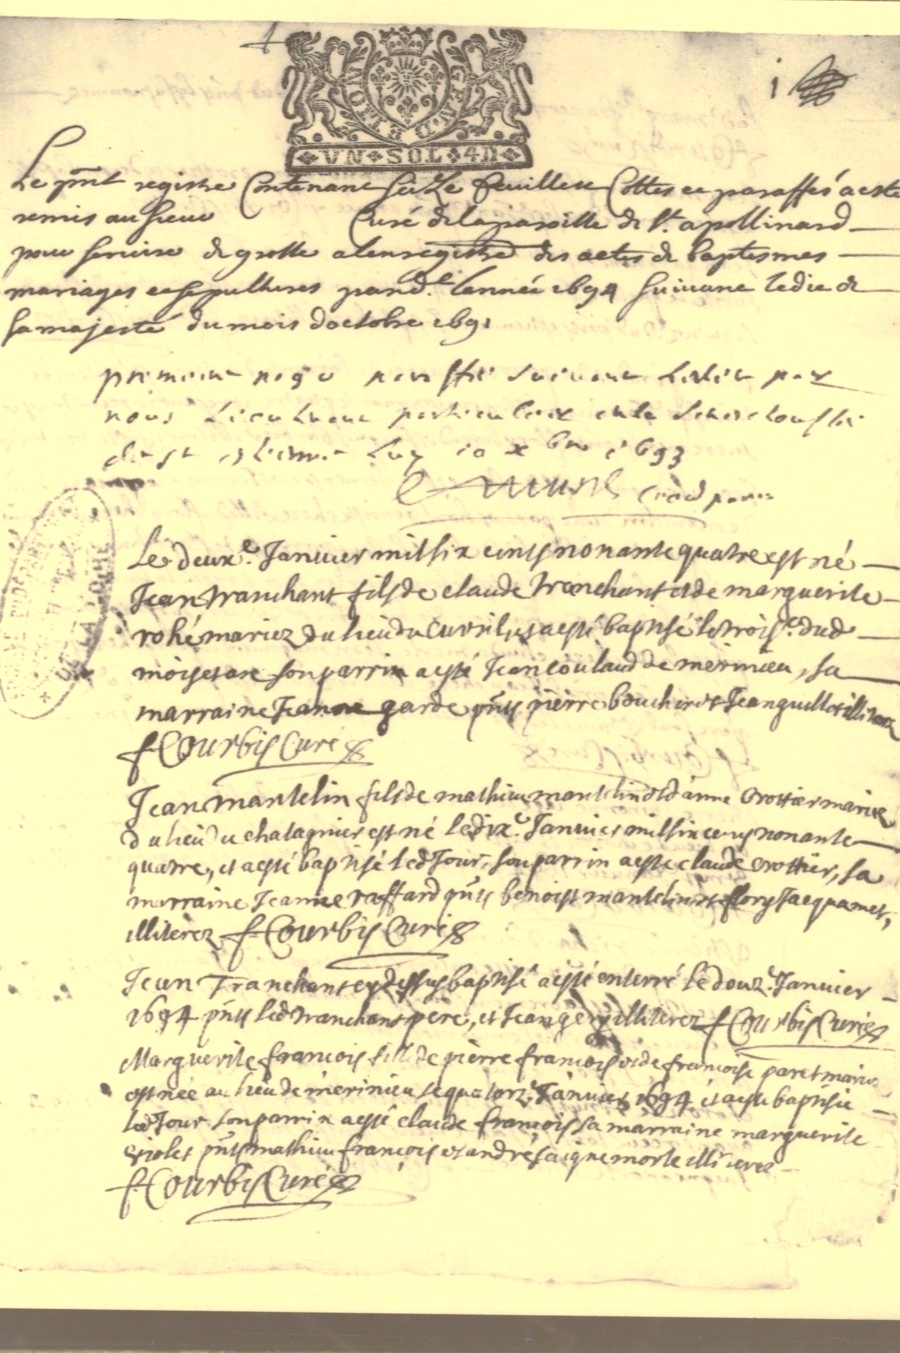 i
GEN.D.E LION
VN SOL 4D
Le pnt registre Contenant seize feuillets Cottes et paraffés a esté
remis au sieur Curé de la paroisse de St. apollinard
pour servire de grosse a lenregistre des actes de baptesmes
mariages et sepultures pand.t Lannée 1694 suivant ledit de
sa majesté du mois doctobre 1691
paraffé suivant Ledit par
nous Lieutenant particulier en la Senechaussée
de St estienne Luy 10 xbre 1693
Le deuxe. Janvier mil six cents nonante quatre est né
Jean tranchant fils de claude tranchant et de marguerite
rohé mariez du lieu du Curril, et a esté baptisé le troise. dud
mois et an son parrin a esté Jean coulaud de merimieu, sa
marraine Jeanne garde pnts pierre boucher et Jean guillot illiterez
f Courbis Curé
Jean mantelin fils de mathieu mantelin et d'anne Crottier mariez
du lieu du chatagnier est né le dixe. Janvier mil six cents nonante
quatre, et a esté baptisé led Jour, son parrin a esté claude Crottier, sa
marraine Jeanne raffard pnts benoist mantelin et flory Jacquamet,
illiterez f Courbis Curé
Jean Tranchant cy dessus baptisé a esté enterré le douze. Janvier
1694 pnts led tranchant pere, et Jean gery illiterez f Courbis Curé
Marguerite francois fille de pierre francois et de francoise paret mariez
est née au lieu de merimieu le quatorze. Janvier 1694 et a esté baptisée
led Jour son parrin a esté claude francois sa marraine marguerite
violet pnts mathieu francois et andré saignemorte illiterez
f. Courbis Curé